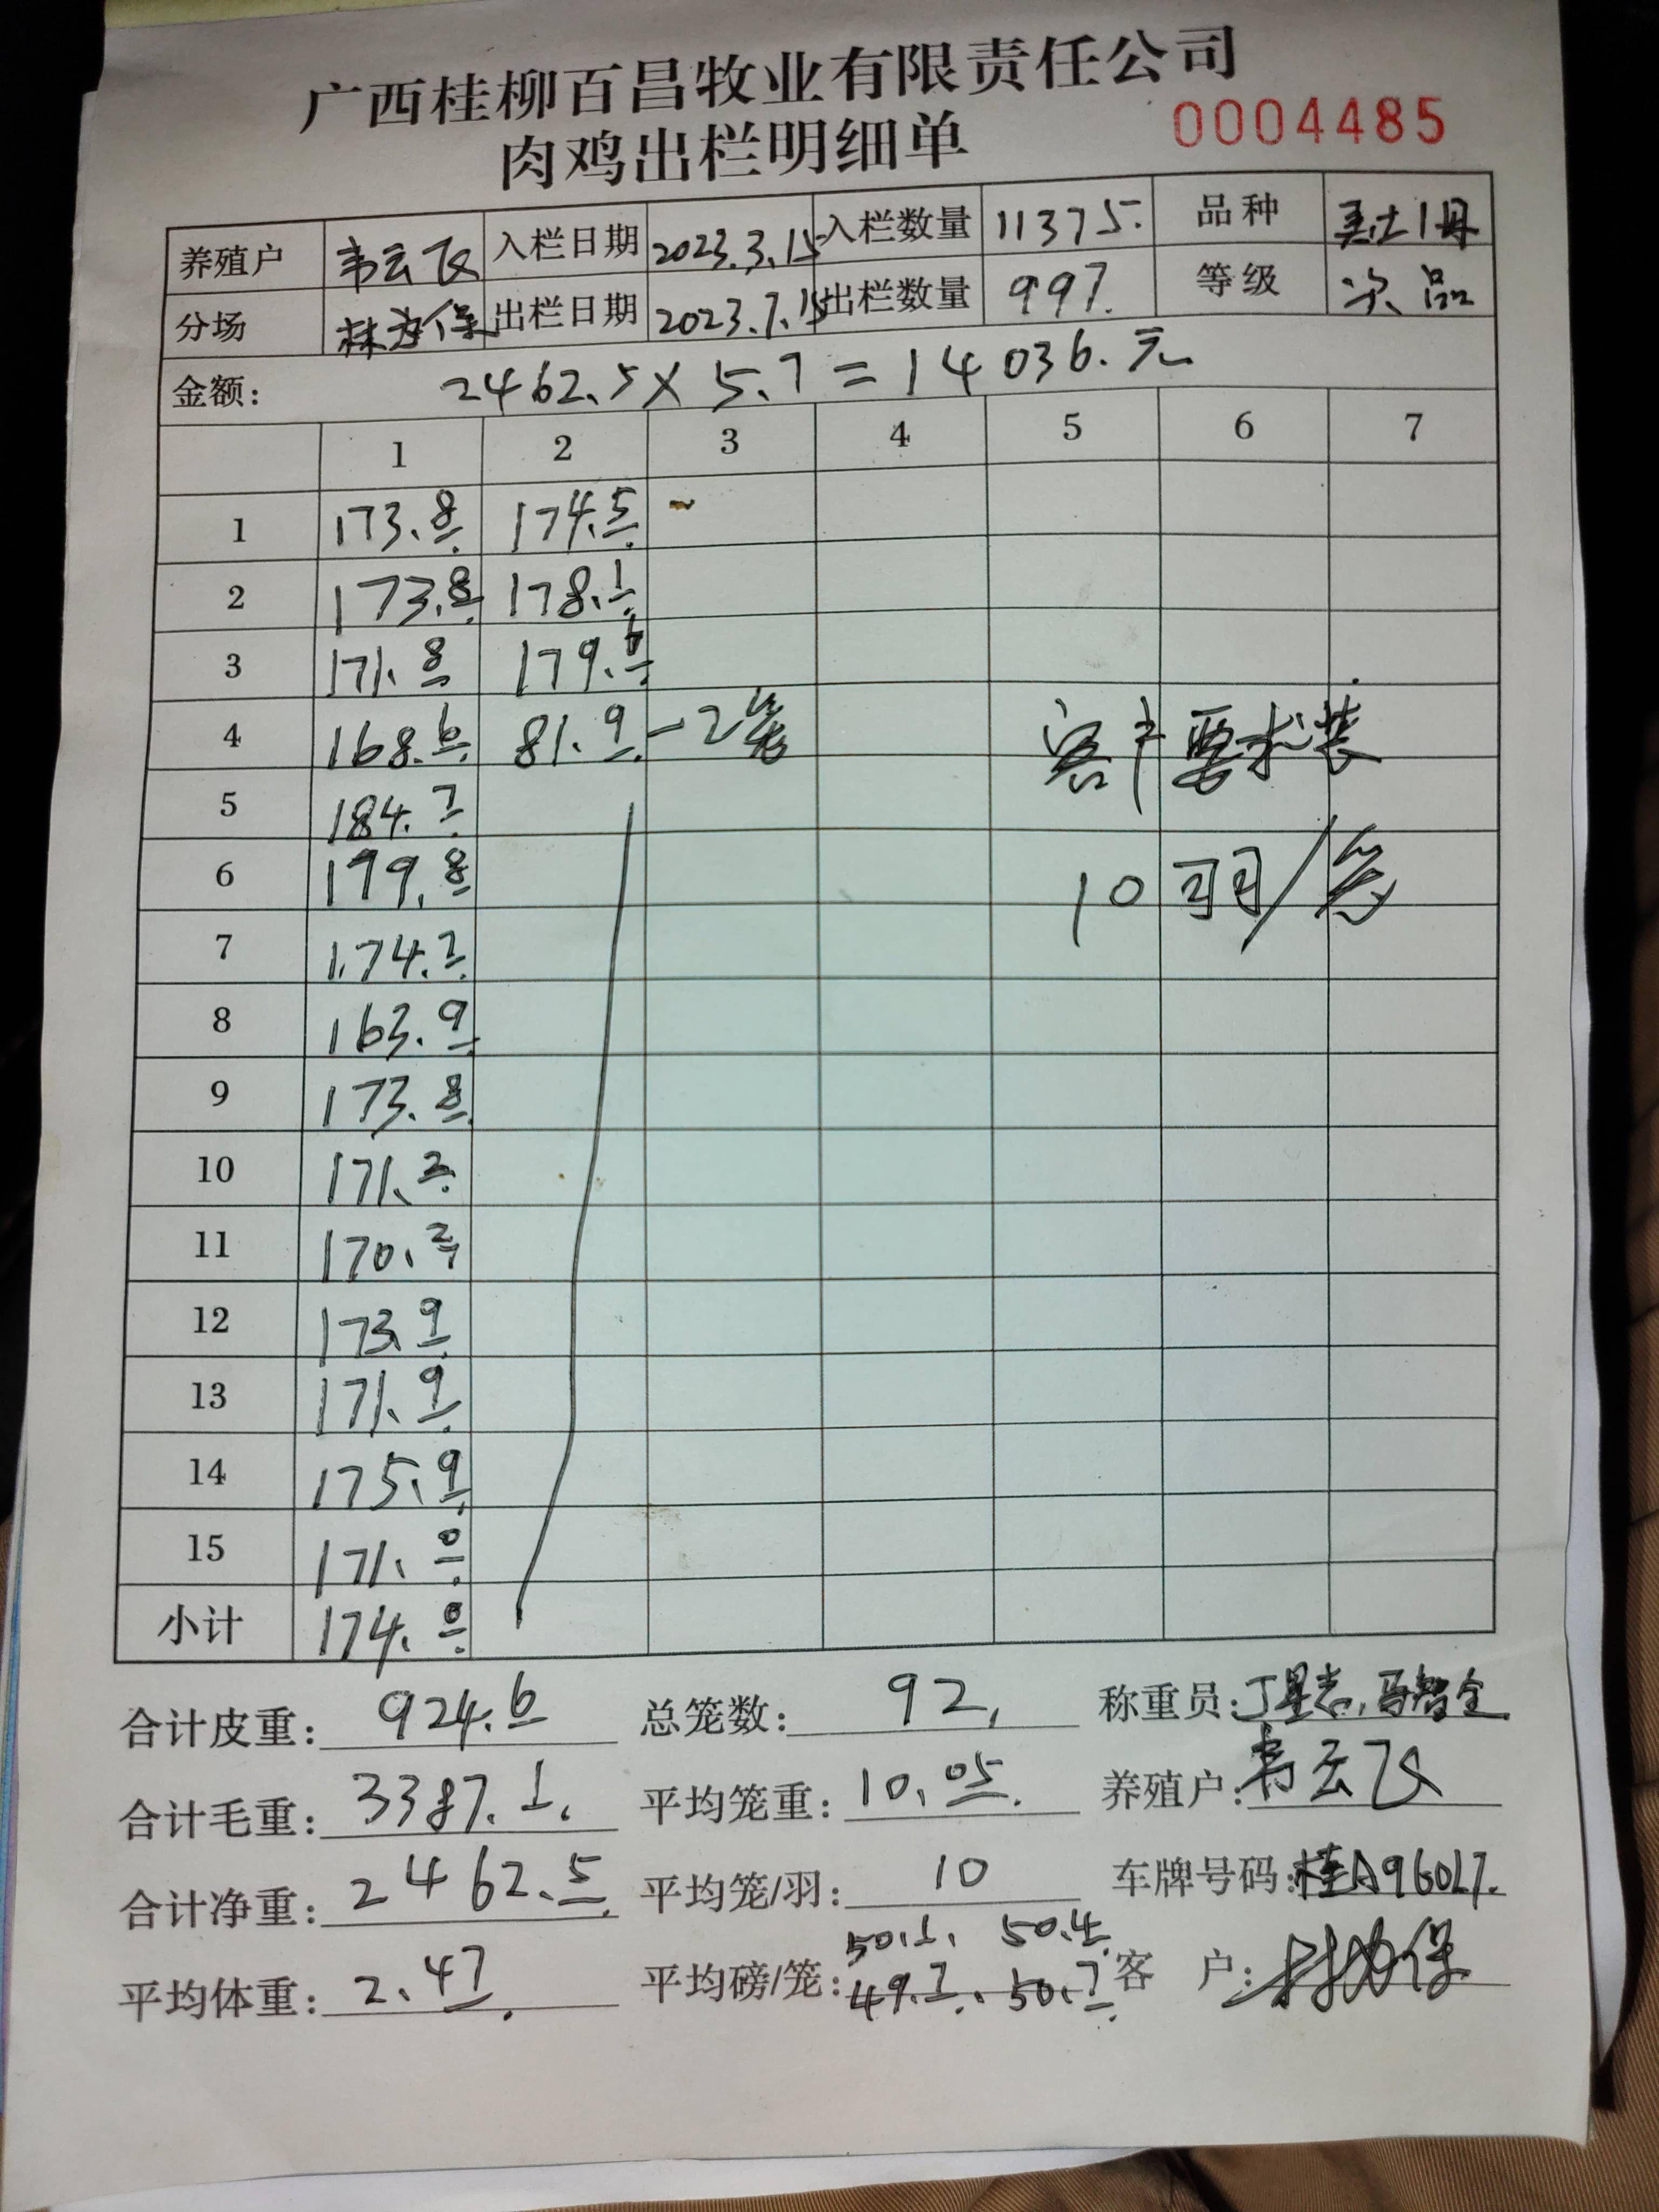 广西桂柳百昌牧业有限责任公司
肉鸡出栏明细单 0004485
养殖户 韦云飞 入栏日期 2023.3.15 入栏数量 11375. 品种
分场 出栏日期 2023.7.15 出栏数量 997. 等级 次品
金额: 2462.5×5.7=14036.元
1 2 3 4 5 6 7
1 173.8 174.5
2 173.8 178.1
3 171.8 179.
4 168.6 81.9 -2笼 客户要求装
5 184.7
6 179.8 10羽/笼
7 174.7
8 163.9
9 173.8
10 171.2
11 170.2
12 173.9
13 171.9
14 175.9
15 171.0
小计 174.0
合计皮重: 924.6 总笼数: 92. 称重员:
合计毛重: 3387.1. 平均笼重: 10.05. 养殖户: 韦云飞
合计净重: 2462.5 平均笼/羽: 10 车牌号码: 桂A96017.
50.1、50.4
平均体重: 2.47. 平均磅/笼: 49.7、50.7. 客 户: